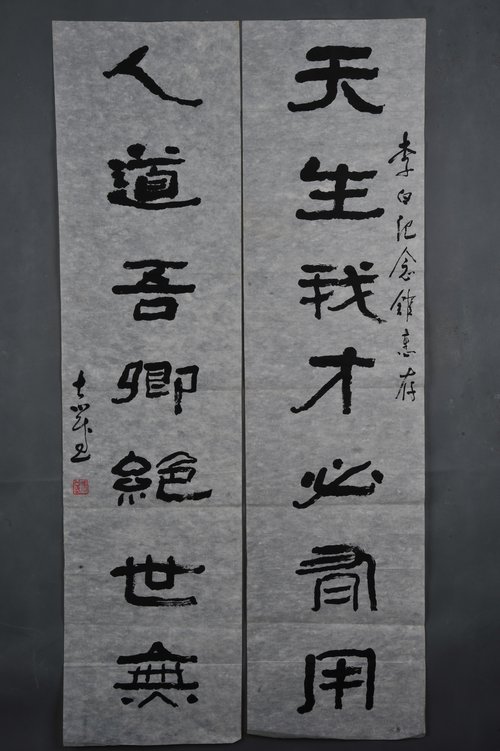 李白纪念馆惠存
天生我才必有用
人道吾卿絕世無